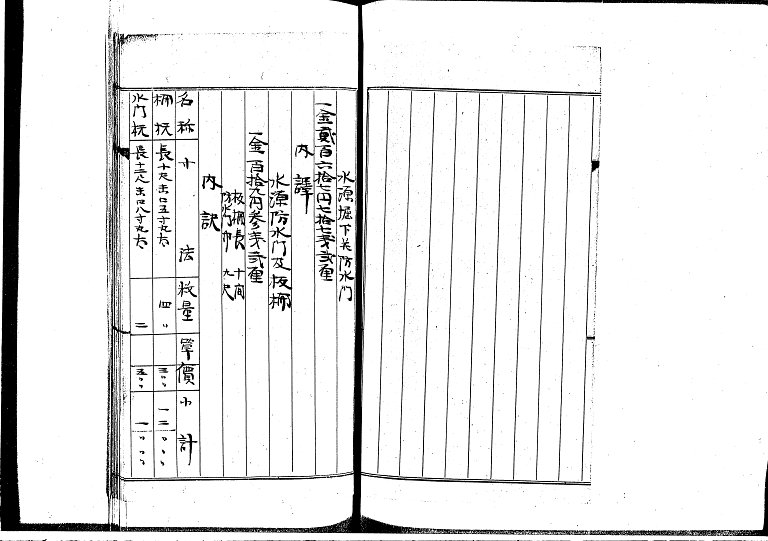 水源堀下
防水門
一金貳百六拾七円七拾七戋弐厘
内譯
水源防水門及板柵
一金百拾九円参戋弐厘
板柵長 十間
防水門巾 九尺
内訳
名称 寸法 数量 單價 小計
柵杭 長十尺 末口五寸丸太 四〇 三〇〇 一二〇〇〇
水門杭 末口尺 寸丸太 二 五〇〇 一〇〇〇